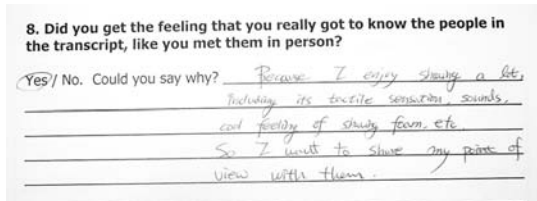 8. Did you get the feeling that you really got to know the people in
the transcript, like you met them in person?
Yes / No. Could you say why? Because I enjoy shaving a lot,
Including its tactile sensation, sounds,
cool feeling of shaving foam, etc.
So I want to share my point of
view with them.